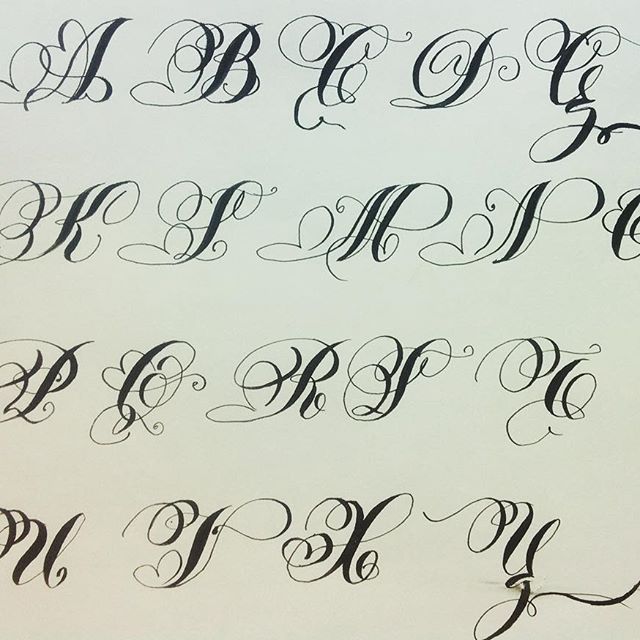 A B C D G
K L M N O
P Q R S T
U V X Y